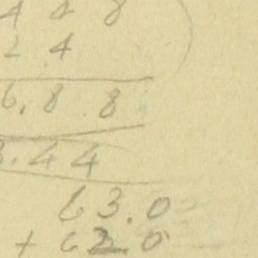 4 4 8
2 4
6.8 8
3.44
63.0
+ 62.0